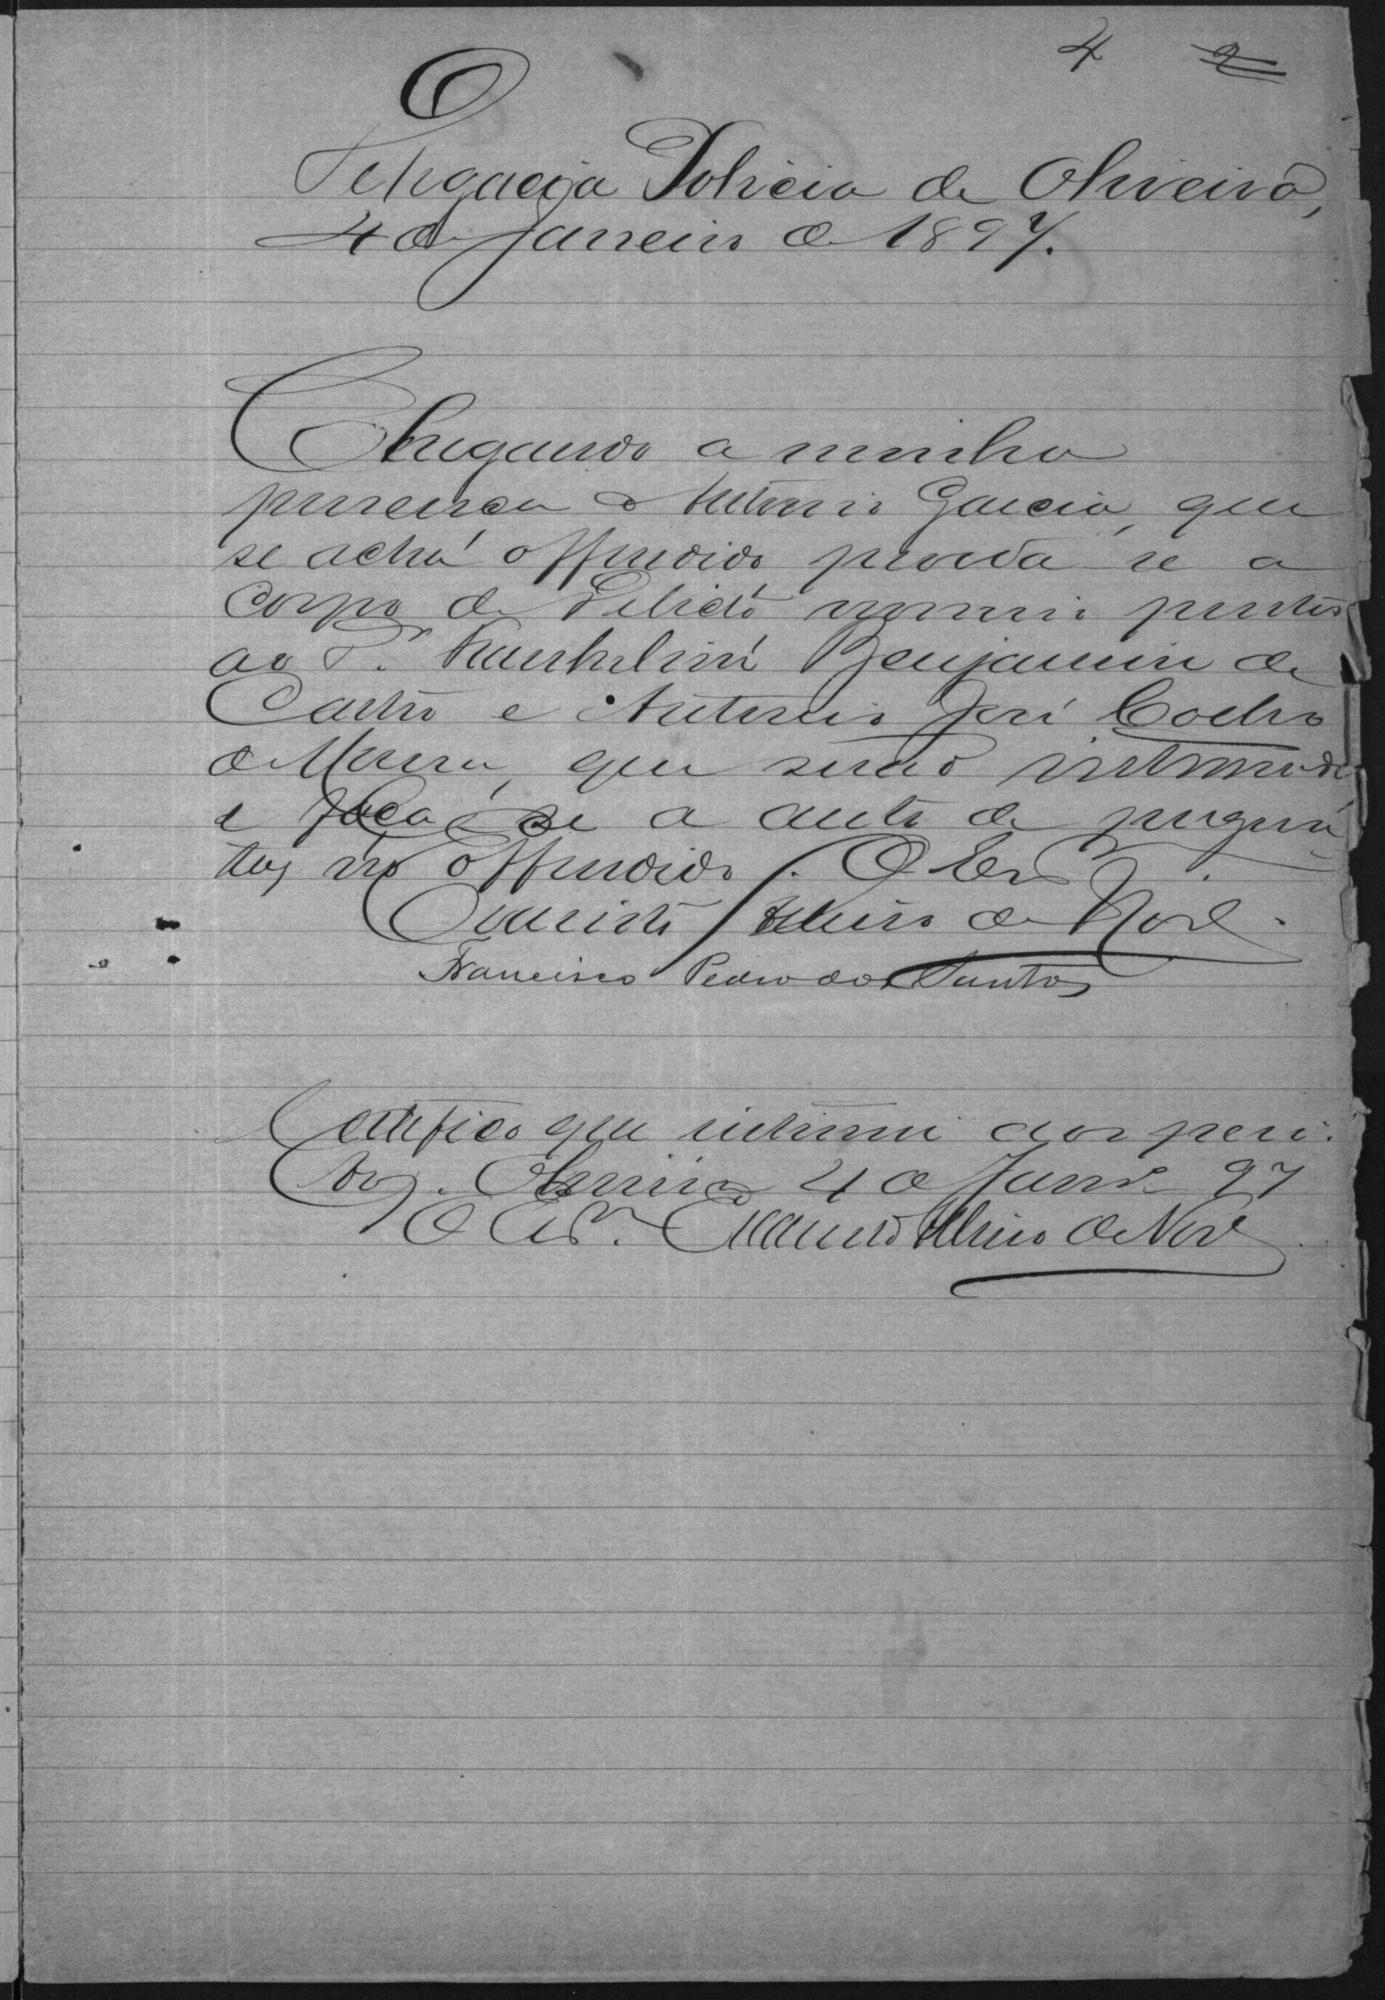 4 2
Delegacia Policia de Oliveira,
4 de Janeiro de 1897.
Chegando a minha
presença o Antonio Garcia, que
se acha offendido proceda se a
Corpo de Delicto nomeio peritos
ao Dr. Benjamim de
Castro e Antonio José Coelho
de Moura, que serão intimados
e faça se o auto de pergun
tas no offendido. O Escr.
Evaristo de Nore.
Francisco Pedro dos Santos
Certifico que intimei aos peri
tos. Oliveira 4 de Janr. 97
O Escr. Evaristo de Nore